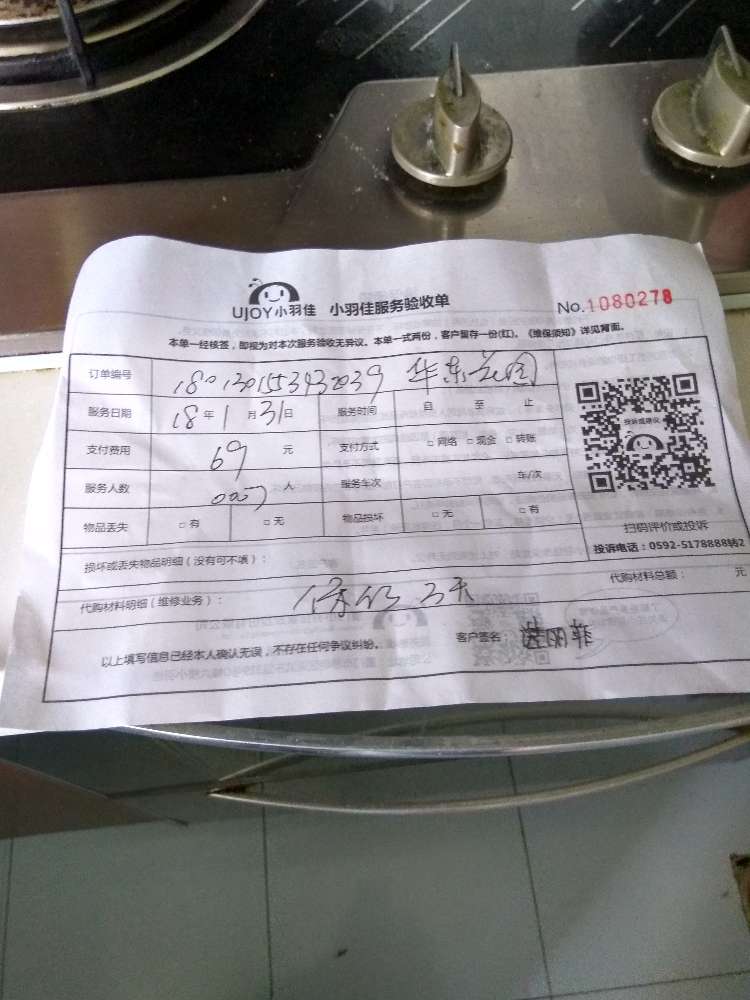 UJOY小羽佳 小羽佳服务验收单 No.1080278
本单一经核签，即视为对本次服务验收无异议。本单一式两份，客户留存一份(红)。《维保须知》详见背面。
订单编号 华东花园
服务日期 18年1月31日 服务时间 自 至 止
支付费用 69 元 支付方式 □网络 □现金 □转账
服务人数 人 服务车次 车/次
物品丢失 □有 □无 物品损坏 □无 □有
扫码评价或投诉
投诉电话：0592-5178888转2
损坏或丢失物品明细（没有可不填）：
代购材料明细（维修业务）： 代购材料总额： 元
以上填写信息已经本人确认无误，不存在任何争议纠纷。 客户签名